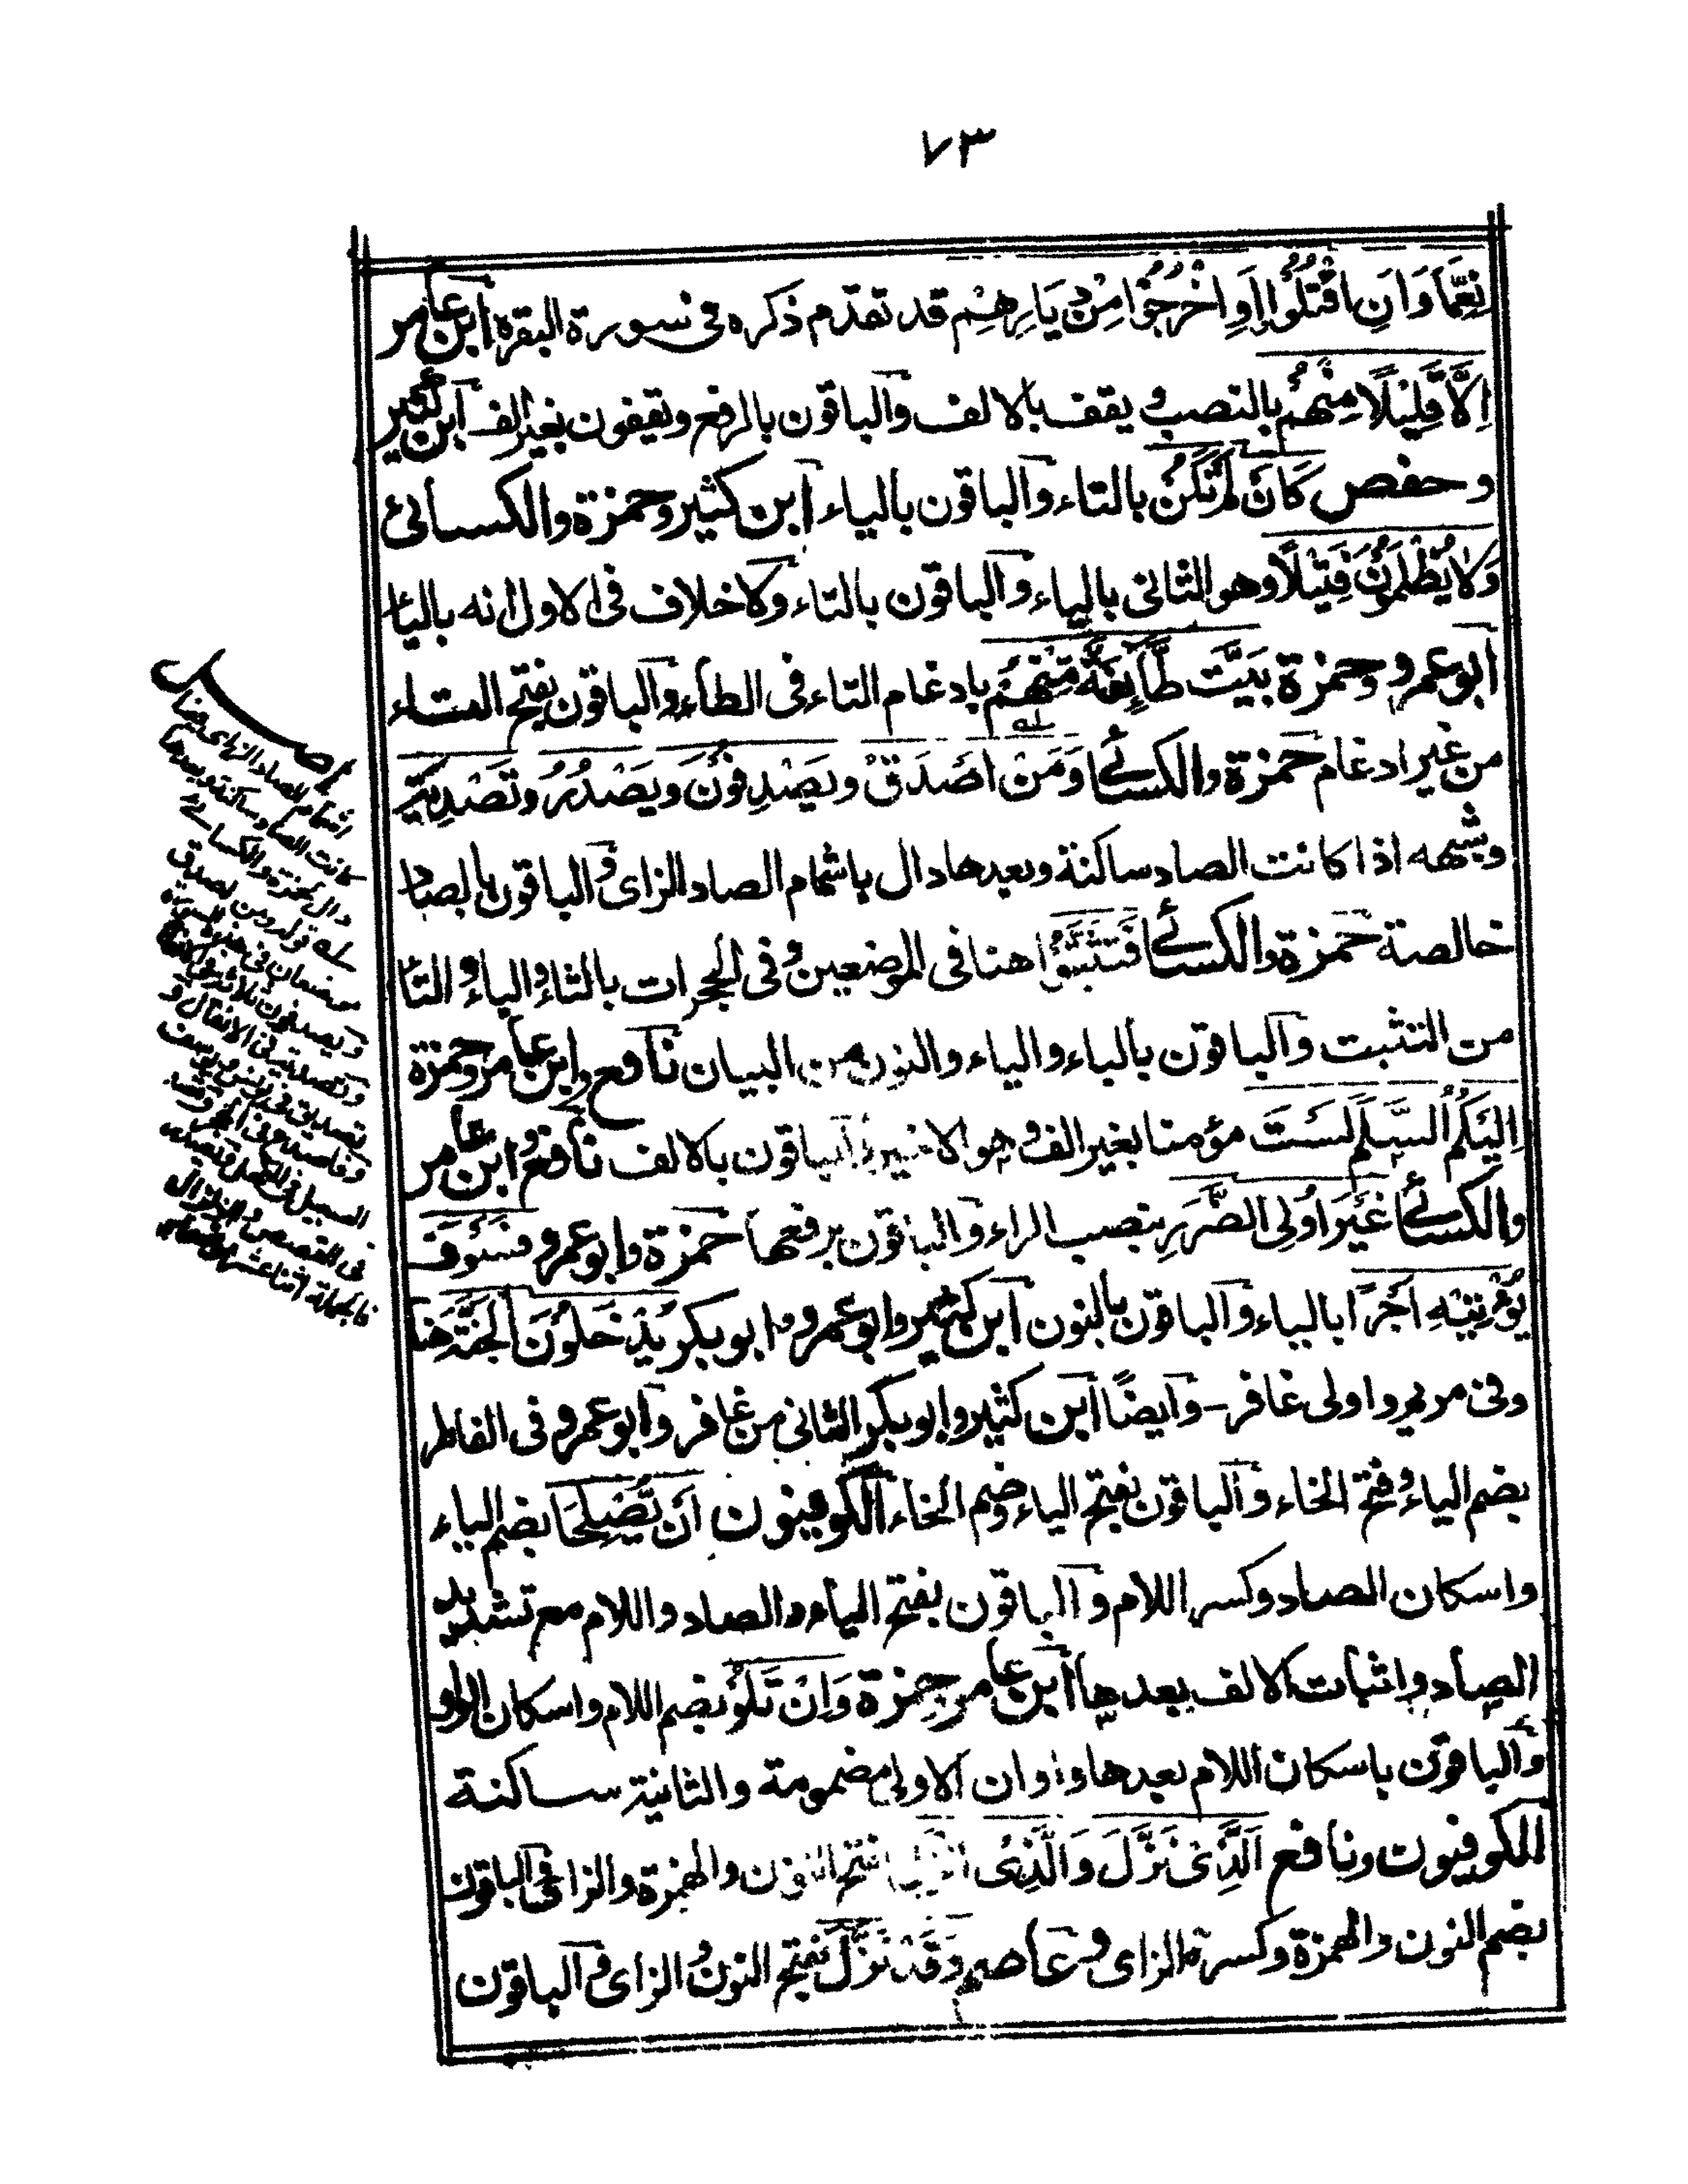 ٧٣
نِعِمَّا وَاَنِ اقْتُلُوْا اَوِ اخْرُجُوْا مِنْ دِيَارِهِمْ قد تقدّم ذكره فى سورة البقرة ابن عامر
اِلَّا قَلِيْلًا مِنْهُمْ بالنصب و يقف بالالف والباقون بالرفع ويقفون بغير الف ابن كثير
وحفص كَانَ لَمْ تَكُنْ بالتاء والباقون بالياء ابن كثير وحمزة والكسائى
وَلَا يُظْلَمُوْنَ فَتِيْلًا وهو الثانى بالياء والباقون بالتاء ولا خلاف فى الاول انه بالياء
ابو عمرو وحمزة بَيَّتَ طَّآئِفَةٌ مِّنْهُمْ بادغام التاء فى الطاء والباقون بفتح التاء
من غير ادغام حمزة والكسائى وَمَنْ اَصْدَقْ ويَصْدِفُوْنَ ويَصْدُرُ وتَصْدِيَةً
وشبهه اذا كانت الصاد ساكنة وبعدها دال باشمام الصاد الزاى والباقون بالصاد
خالصة حمزة والكسائى فَتَثَبَّتُوْا هنا فى الموضعين وفى الحجرات بالثاء والباء والتاء
من التثبت والباقون بالباء والياء والنون من البيان نافع وابن عامر وحمزة
اِلَيْكُمُ السَّلَمَ لَسْتَ مؤمنا بغير الف وهو الاخير والباقون بالالف نافع وابن عامر
والكسائى غَيْرَ اُولِى الضَّرَرِ بنصب الراء والباقون برفعها حمزة وابو عمرو فسَوْفَ
يُؤْتِيْهِ اَجْرًا بالياء والباقون بالنون ابن كثير وابو عمرو وابو بكر يُدْخَلُوْنَ الْجَنَّةَ هنا
وفى مريم واولى غافر وايضًا ابن كثير وابو بكر الثانى من غافر وابو عمرو فى الفاطر
بضم الياء وفتح الخاء والباقون بفتح الياء وضم الخاء الكوفيون اَنْ يُّصْلِحَا بضم الياء
واسكان الصاد وكسر اللام والباقون بفتح الياء والصاد واللام مع تشديد
الصاد واثبات الالف بعدها ابن عامر وحمزة وَاِنْ تَلُوْ بضم اللام واسكان الواو
والباقون باسكان اللام بعدها واوان الاولى مضمومة والثانية ساكنة
الكوفيون ونافع الَّذِىْ نَزَّلَ وَالَّذِىْ بفتح النون والهمزة والزاى والباقون
بضم النون والهمزة وكسرة الزاى وعاصم وَقَدْ نَزَّلَ بفتح النون والزاى والباقون
اشمام الصاد الزاى
كانت الصاد ساكنة وبعدها
دال لحمزة والكسائى
قوله ومن اصدق
موضعان فى هذه السورة
ويصدفون ثلاثة
وتصدية فى الانفال و
تصديق فى يونس ويوسف
وفاصدع فى الحجر